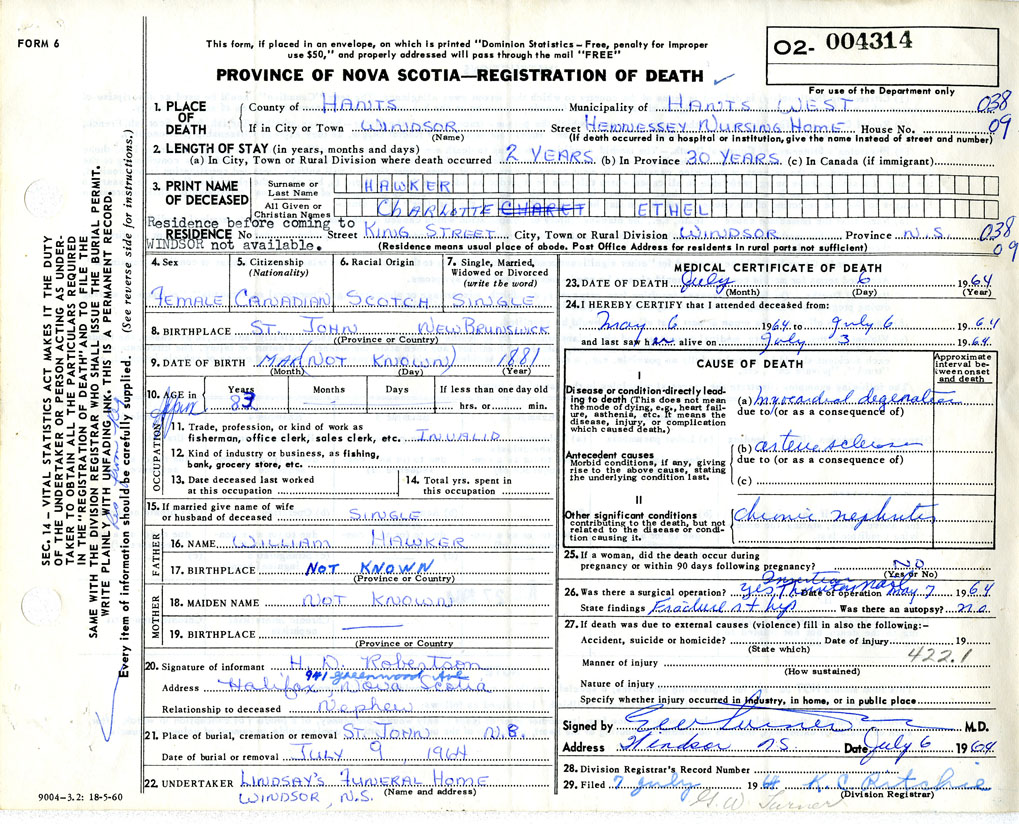 FORM 6
This form, if placed in an envelope, on which is printed "Dominion Statistics – Free, penalty for improper
use $50," and properly addressed will pass through the mail "FREE"
PROVINCE OF NOVA SCOTIA—REGISTRATION OF DEATH
02- 004314
For use of the Department only
1. PLACE OF DEATH
County of HANTS Municipality of HANTS WEST 038
If in City or Town WINDSOR Street HENNESSEY NURSING HOME House No. 09
(Name) (If death occurred in a hospital or institution, give the name instead of street and number)
2. LENGTH OF STAY (in years, months and days)
(a) In City, Town or Rural Division where death occurred 2 YEARS (b) In Province 30 YEARS (c) In Canada (if immigrant)
3. PRINT NAME OF DECEASED
Surname or Last Name HAWKER
All Given or Christian Names CHARLOTTE ETHEL
Residence before coming to
RESIDENCE No. Street KING STREET City, Town or Rural Division WINDSOR Province N.S. 038
WINDSOR not available. (Residence means usual place of abode. Post Office Address for residents in rural parts not sufficient) 09
4. Sex FEMALE
5. Citizenship (Nationality) CANADIAN
6. Racial Origin SCOTCH
7. Single, Married, Widowed or Divorced (write the word) SINGLE
8. BIRTHPLACE ST. JOHN NEW BRUNSWICK
(Province or Country)
9. DATE OF BIRTH (NOT KNOWN) 1881
(Month) (Day) (Year)
10. AGE in Years 83 Months Days If less than one day old
hrs. or min.
OCCUPATION
11. Trade, profession, or kind of work as
fisherman, office clerk, sales clerk, etc. INVALID
12. Kind of industry or business, as fishing,
bank, grocery store, etc.
13. Date deceased last worked
at this occupation
14. Total yrs. spent in
this occupation
15. If married give name of wife
or husband of deceased SINGLE
FATHER
16. NAME WILLIAM HAWKER
17. BIRTHPLACE NOT KNOWN
(Province or Country)
MOTHER
18. MAIDEN NAME NOT KNOWN
19. BIRTHPLACE
(Province or Country)
20. Signature of informant H. D. Robertson
941 Greenwood Ave
Address Halifax, Nova Scotia
Relationship to deceased Nephew
21. Place of burial, cremation or removal ST. JOHN N.B.
Date of burial or removal JULY 9 1964
22. UNDERTAKER LINDSAY'S FUNERAL HOME
(Name and address)
WINDSOR, N.S.
9004–3.2: 18-5-60
SEC. 14 – VITAL STATISTICS ACT MAKES IT THE DUTY
OF THE UNDERTAKER OR PERSON ACTING AS UNDER-
TAKER TO OBTAIN ALL THE PARTICULARS REQUIRED
IN THE "REGISTRATION OF DEATH" AND TO FILE THE
SAME WITH THE DIVISION REGISTRAR WHO SHALL ISSUE THE BURIAL PERMIT.
WRITE PLAINLY WITH UNFADING INK. THIS IS A PERMANENT RECORD.
Every item of information should be carefully supplied. (See reverse side for instructions.)
MEDICAL CERTIFICATE OF DEATH
23. DATE OF DEATH July 6 1964
(Month) (Day) (Year)
24. I HEREBY CERTIFY that I attended deceased from:
May 6 1964 to July 6 1964
and last saw her alive on July 3 1964.
CAUSE OF DEATH
Approximate interval between onset and death
I
Disease or condition directly lead-
ing to death (This does not mean
the mode of dying, e.g., heart fail-
ure, asthenia, etc. It means the
disease, injury, or complication
which caused death.)
(a) myocardial degeneration
due to (or as a consequence of)
Antecedent causes
Morbid conditions, if any, giving
rise to the above cause, stating
the underlying condition last.
(b) arteriosclerosis
due to (or as a consequence of)
(c)
II
Other significant conditions
contributing to the death, but not
related to the disease or condi-
tion causing it.
chronic nephritis
25. If a woman, did the death occur during
pregnancy or within 90 days following pregnancy? NO
(Yes or No)
26. Was there a surgical operation? yes Insertion Date of operation May 7 1964
State findings Fracture rt hip Was there an autopsy? no.
27. If death was due to external causes (violence) fill in also the following:–
Accident, suicide or homicide? Date of injury 19
(State which) 422.1
Manner of injury
(How sustained)
Nature of injury
Specify whether injury occurred in industry, in home, or in public place
Signed by M.D.
Address Windsor NS Date July 6 1964
28. Division Registrar's Record Number
29. Filed 7 July 1964 K. C. Ritchie
(Division Registrar)